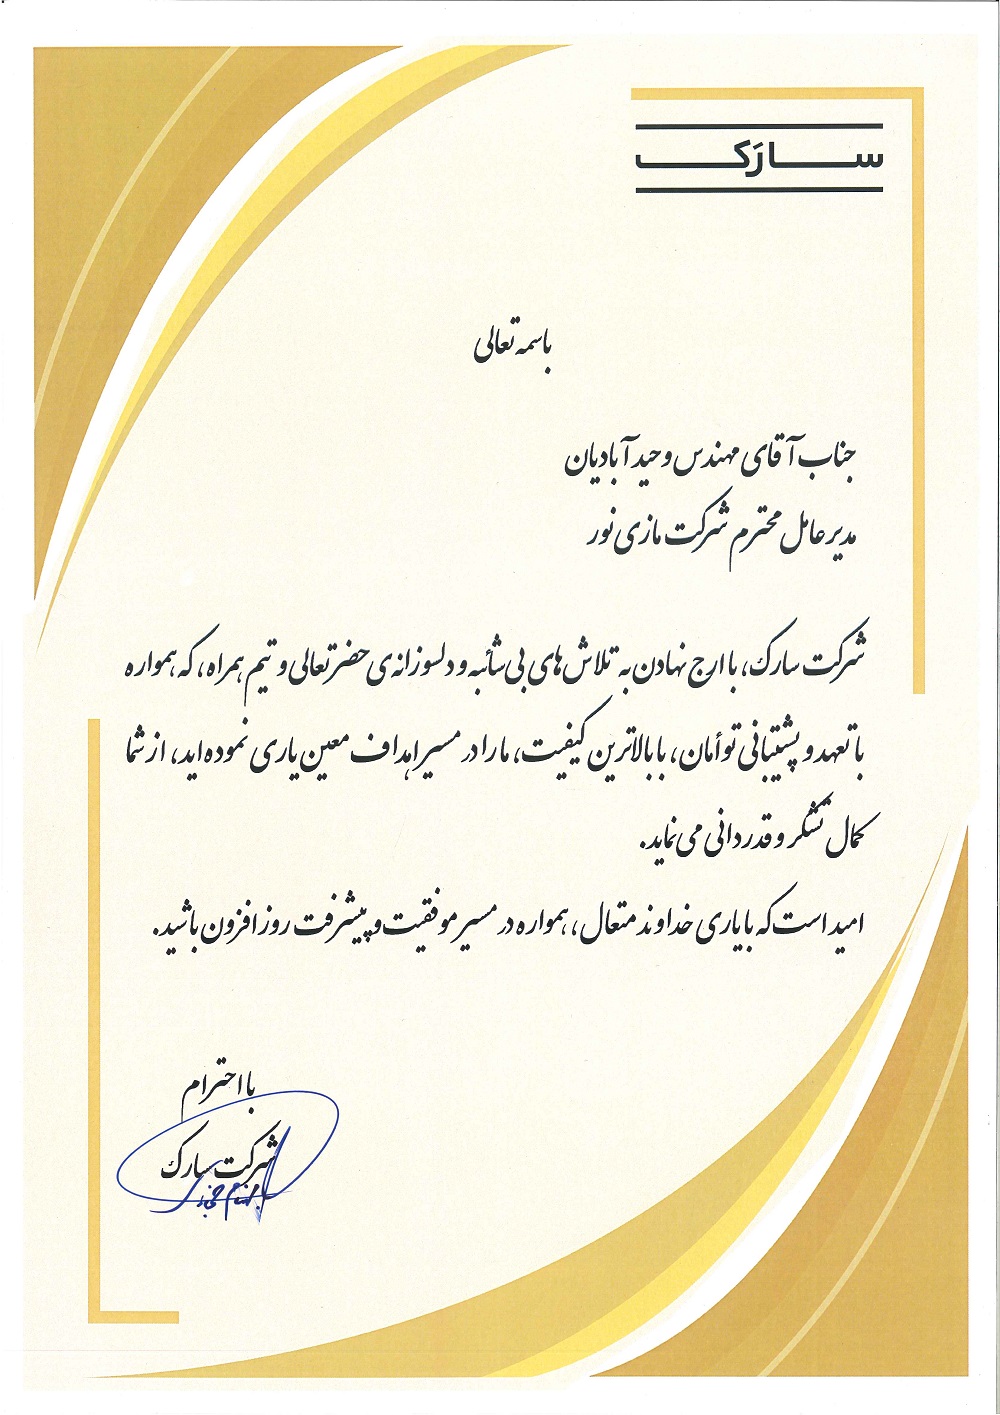 سارَک
باسمه تعالی
جناب آقای مهندس وحید آبادیان
مدیر عامل محترم شرکت مازی نور
شرکت سارک، با ارج نهادن به تلاش های بی شائبه و دلسوزانه ی حضرتعالی و تیم همراه، که همواره
با تعهد و پشتیبانی توأمان، با بالاترین کیفیت، ما را در مسیر اهداف معین یاری نموده اید، از شما
کمال تشکر و قدردانی می نماید.
امید است که با یاری خداوند متعال، همواره در مسیر موفقیت و پیشرفت روز افزون باشید.
با احترام
شرکت سارک